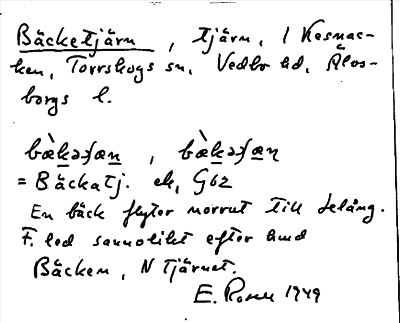 Bäcketjärn, tjärn, i Kesnac-
ken, Torrskogs sn, Vedbo hd, Älvs-
borgs l.
bækəʃæn, bækəʃæn
= Bäckatj. ek, G62
En bäck flyter norrut till Lelång.
F. led sannolikt efter hmd
Bäcken, N Tjärnet.
E. Rosell 1949